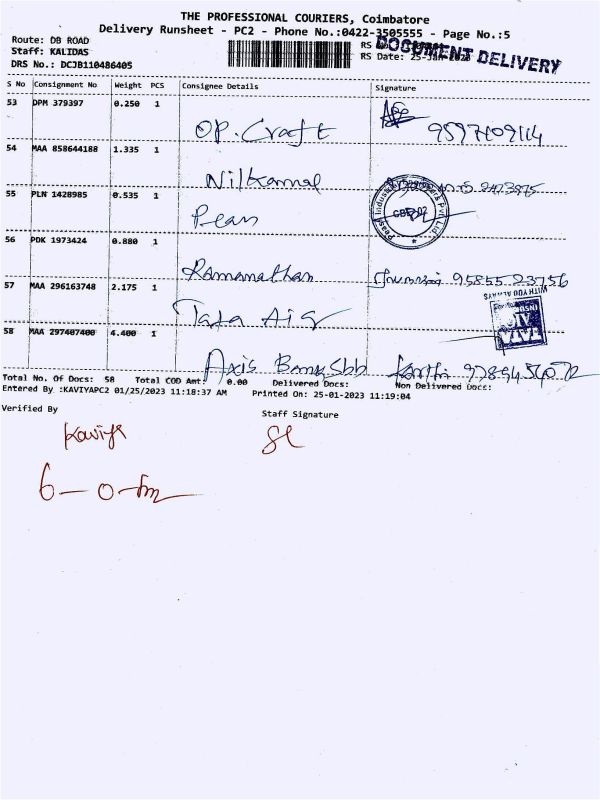 THE PROFESSIONAL COURIERS, Coimbatore
Delivery Runsheet - PC2 - Phone No.:0422-3505555 - Page No.:5
Route: DB ROAD
Staff: KALIDAS
DRS No.: DCJB110486405
RS
RS Date: 25-Jan-2023
DOCUMENT DELIVERY
S No Consignment No Weight PCS Consignee Details Signature
53 DPM 379397 0.250 1
OP. Craft 9597109114
54 MAA 858644188 1.335 1
Nilkamal
55 PLN 1428985 0.535 1
Pean
56 PDK 1973424 0.880 1
Ramanathan 95855 23756
57 MAA 296163748 2.175 1
Tata Aig
WITH YOU ALWAYS
TATA AIG
58 MAA 297407400 4.400 1
Axis Bank Sbb Karthi
Total No. Of Docs: 58 Total COD Amt: 0.00 Delivered Docs: Non Delivered Docs:
Entered By :KAVIYAPC2 01/25/2023 11:18:37 AM Printed On: 25-01-2023 11:19:04
Verified By Staff Signature
Kaviya